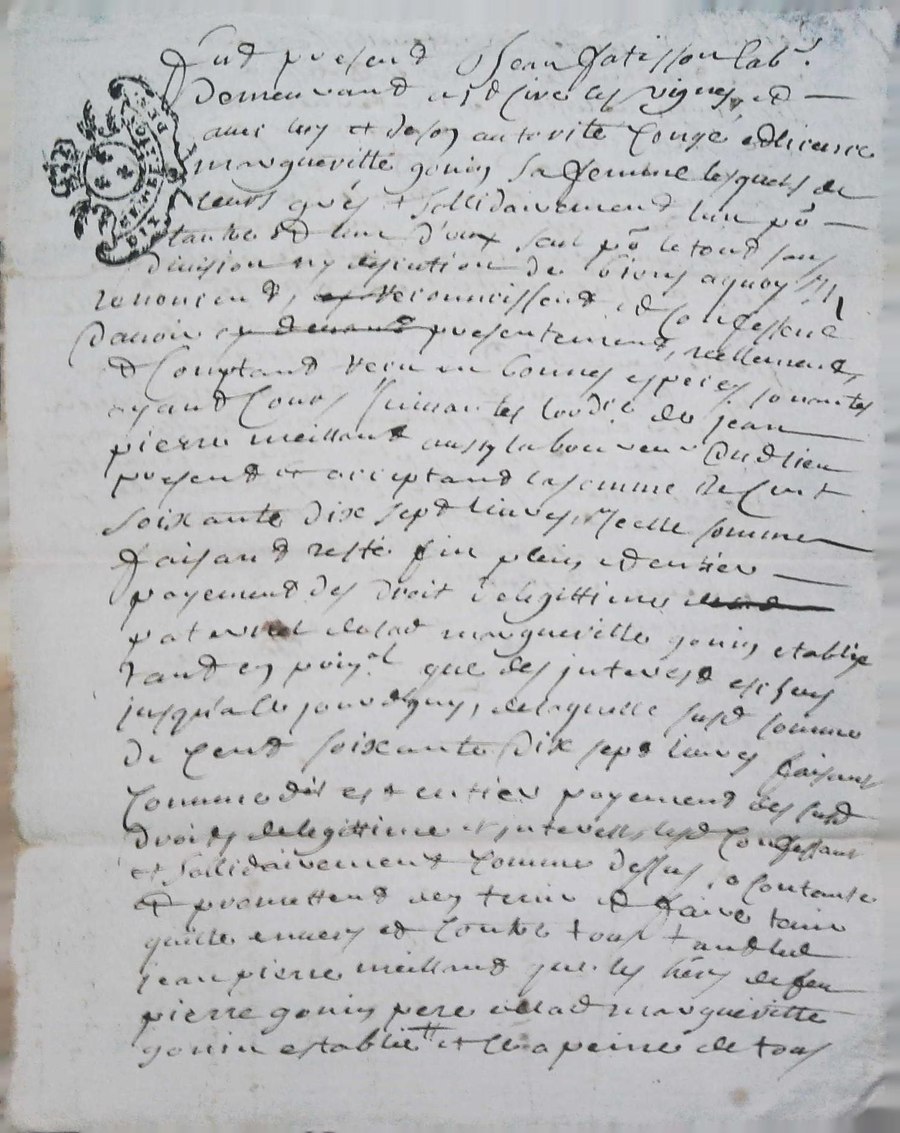 Fud présend Jean fatisson lab.r
Demeurand a st cire les vignes et
avec luy et de son autorité congé et licence
margueritte gonin sa femme lesquels de
leurs grés et sollidairement lun po
lautre et lun d'eux seul po le tout sans
division ny discution de biens a quoy ils
renoncend, reconnoissend et confessend
davoir presentement, réellement,
et comptand receu en bonnes especes sonantes
ayand cours suivant les lordce de jean
pierre meilland aussy laboureur dudlieu
présend et acceptand la somme de cent
soixante dix sept livres, Icelle somme
faisand reste fin plein et entier
payement des droit de legittime
paternel de lad margueritte gonin establie
tand en prinal que des interest escheus
jusqu'a ce jourdhuy, de laquelle susd somme
de cend soixante dix sept livres faisant
comme dit est entier payement des susd
droits de legittime et interest, lesd confessant
et sollidairement comme dessus, contante
et promettend den tenir et faire tenir
quitte envers et contre tous tand led
jean pierre meilland que les hers de feu
pierre gonin pere de lad margueritte
gonin establie et ce a peine de tous